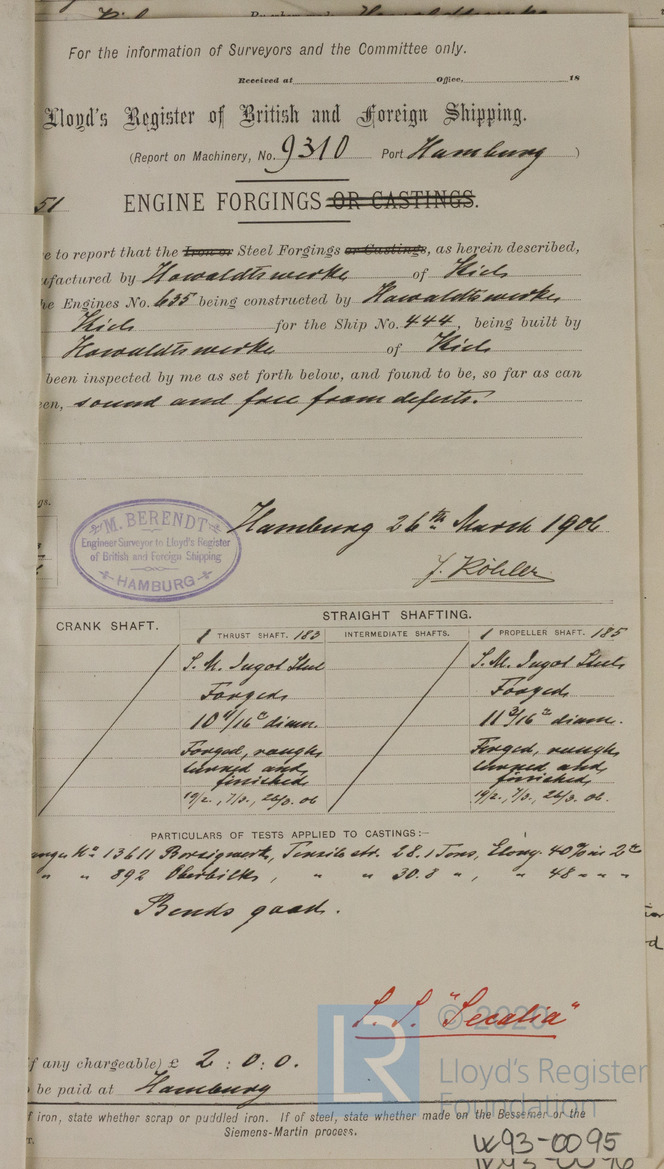 For the information of Surveyors and the Committee only.
Received at Office, 18
Lloyd's Register of British and Foreign Shipping.
(Report on Machinery, No. 9310 Port Hamburg )
51
ENGINE FORGINGS OR CASTINGS.
e to report that the Iron or Steel Forgings or Castings, as herein described,
ufactured by Howaldtswerke of Kiel
he Engines No. 635 being constructed by Howaldtswerke
Kiel for the Ship No. 444, being built by
Howaldtswerke of Kiel
been inspected by me as set forth below, and found to be, so far as can
en, sound and free from defects.
gs.
M. BERENDT
Engineer Surveyor to Lloyd's Register
of British and Foreign Shipping
HAMBURG
Hamburg 26th March 1906
J. Köhler
STRAIGHT SHAFTING.
CRANK SHAFT. 1 THRUST SHAFT. 183 INTERMEDIATE SHAFTS. 1 PROPELLER SHAFT. 185
S. M. Ingot Steel S. M. Ingot Steel
Forged Forged
10 11/16" diam. 11 3/16" diam.
Forged, rough Forged, rough
turned and turned and
finished finished
19/2., 7/3., 26/3. 06 19/2., 7/3., 26/3. 06.
PARTICULARS OF TESTS APPLIED TO CASTINGS:—
No 13611 Borsigwerk, Tensile str. 28.1 Tons, Elong. 40% in 2"
" " 892 Oberbilk, " " 30.8 ", " 48 " " "
Bends good.
S. S. "Secalia"
© 2020
Lloyd's Register
Foundation
LR
if any chargeable) £ 2 : 0 : 0.
be paid at Hamburg
f iron, state whether scrap or puddled iron. If of steel, state whether made on the Bessemer or the
Siemens-Martin process.
T.
W93-0095